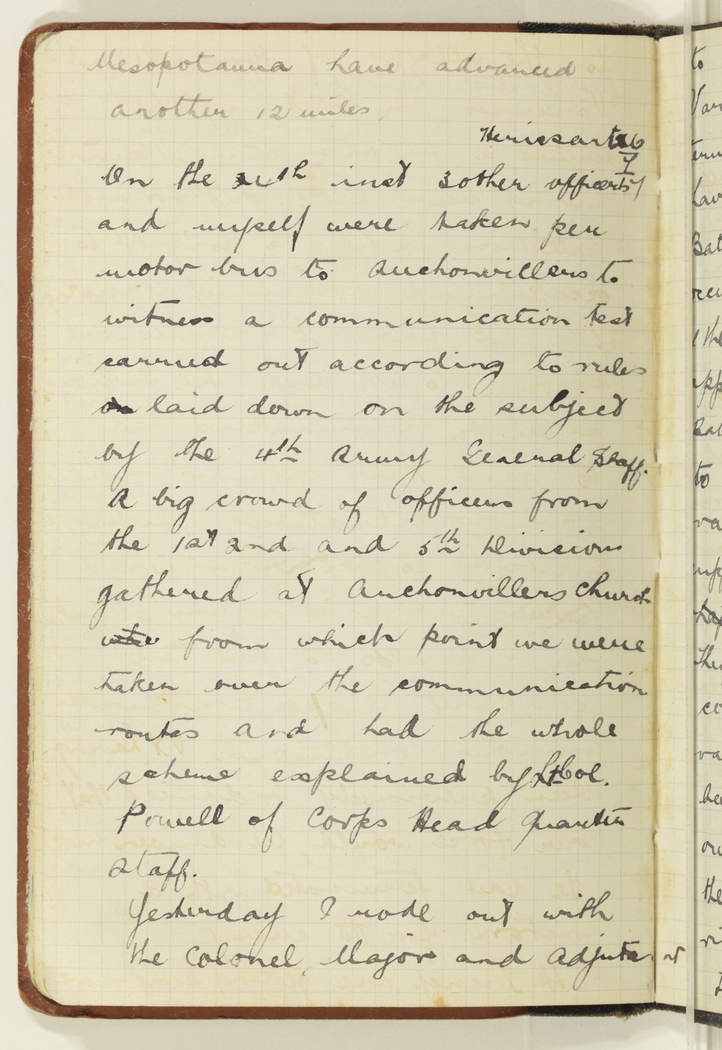 Mesopotamia have advanced
another 12 miles.
Herissart
7
On the 24th inst 3 other officers
and myself were taken per
motor bus to Auchonvillers to
witness a communication test
carried out according to rules
laid down on the subject
by the 4th Army General Staff.
A big crowd of officers from
the 1st 2nd and 5th Divisions
gathered at Auchonvillers Church
from which point we were
taken over the communication
routes and had the whole
scheme explained by Lt Col.
Powell of Corps Head Quarters
staff.
Yesterday I rode out with
the Colonel, Major and Adjutant